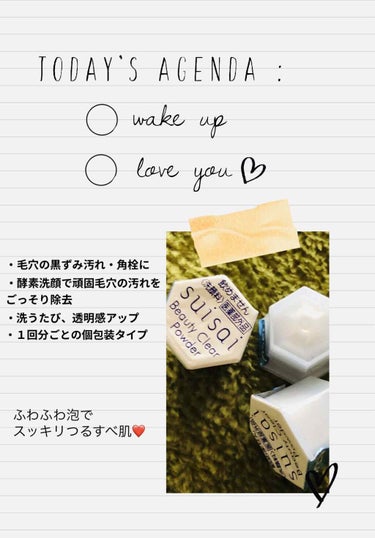 TODAY'S AGENDA :
wake up
love you♡
・毛穴の黒ずみ汚れ・角栓に
・酵素洗顔で頑固毛穴の汚れを
ごっそり除去
・洗うたび、透明感アップ
・１回分ごとの個包装タイプ
ふわふわ泡で
スッキリつるすべ肌❤️
飲めません
suisai
Beauty Clear
Powder
suisai